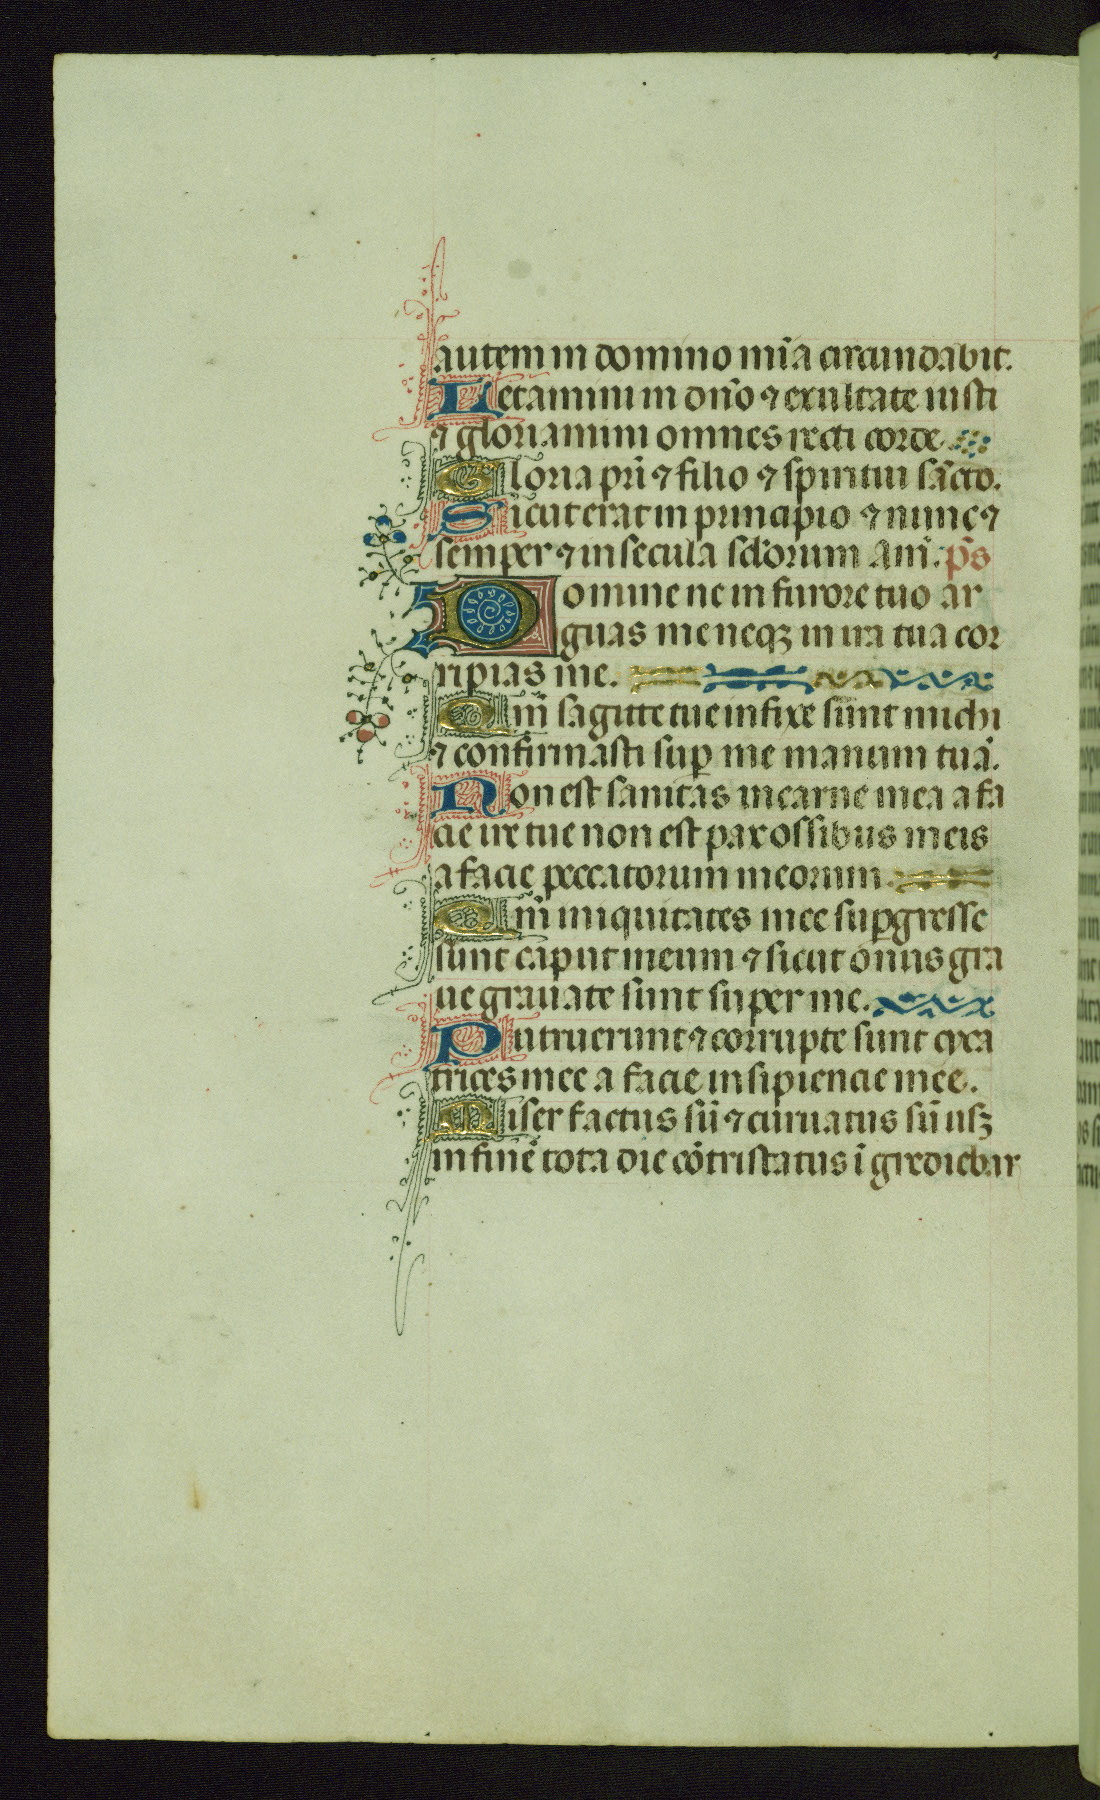 autem in domino mīa circundabit.
Letamini in dn̄o ⁊ exultate iusti
⁊ gloriamini omnes recti corde
Gloria pr̄i ⁊ filio ⁊ spiritui sācto.
Sicut erat in principio ⁊ nunc ⁊
semper ⁊ in secula sclōrum Am̄. p̄s
Domine ne in furore tuo ar
guas me neqꝫ in ira tua cor
ripias me.
Qm̄ sagitte tue infixe sunt michi
⁊ confirmasti suꝑ me manum tuā.
Non est sanitas in carne mea a fa
cie ire tue non est pax ossibus meis
a facie peccatorum meorum.
Qm̄ iniquitates mee suꝑgresse
sunt caput meum ⁊ sicut onus gra
ue grauate sunt super me.
Putruerunt ⁊ corrupte sunt cica
trices mee a facie insipiencie mee.
Miser factus sū ⁊ curuatus sū usꝫ
in finē tota die cōtristatus īgrediebar